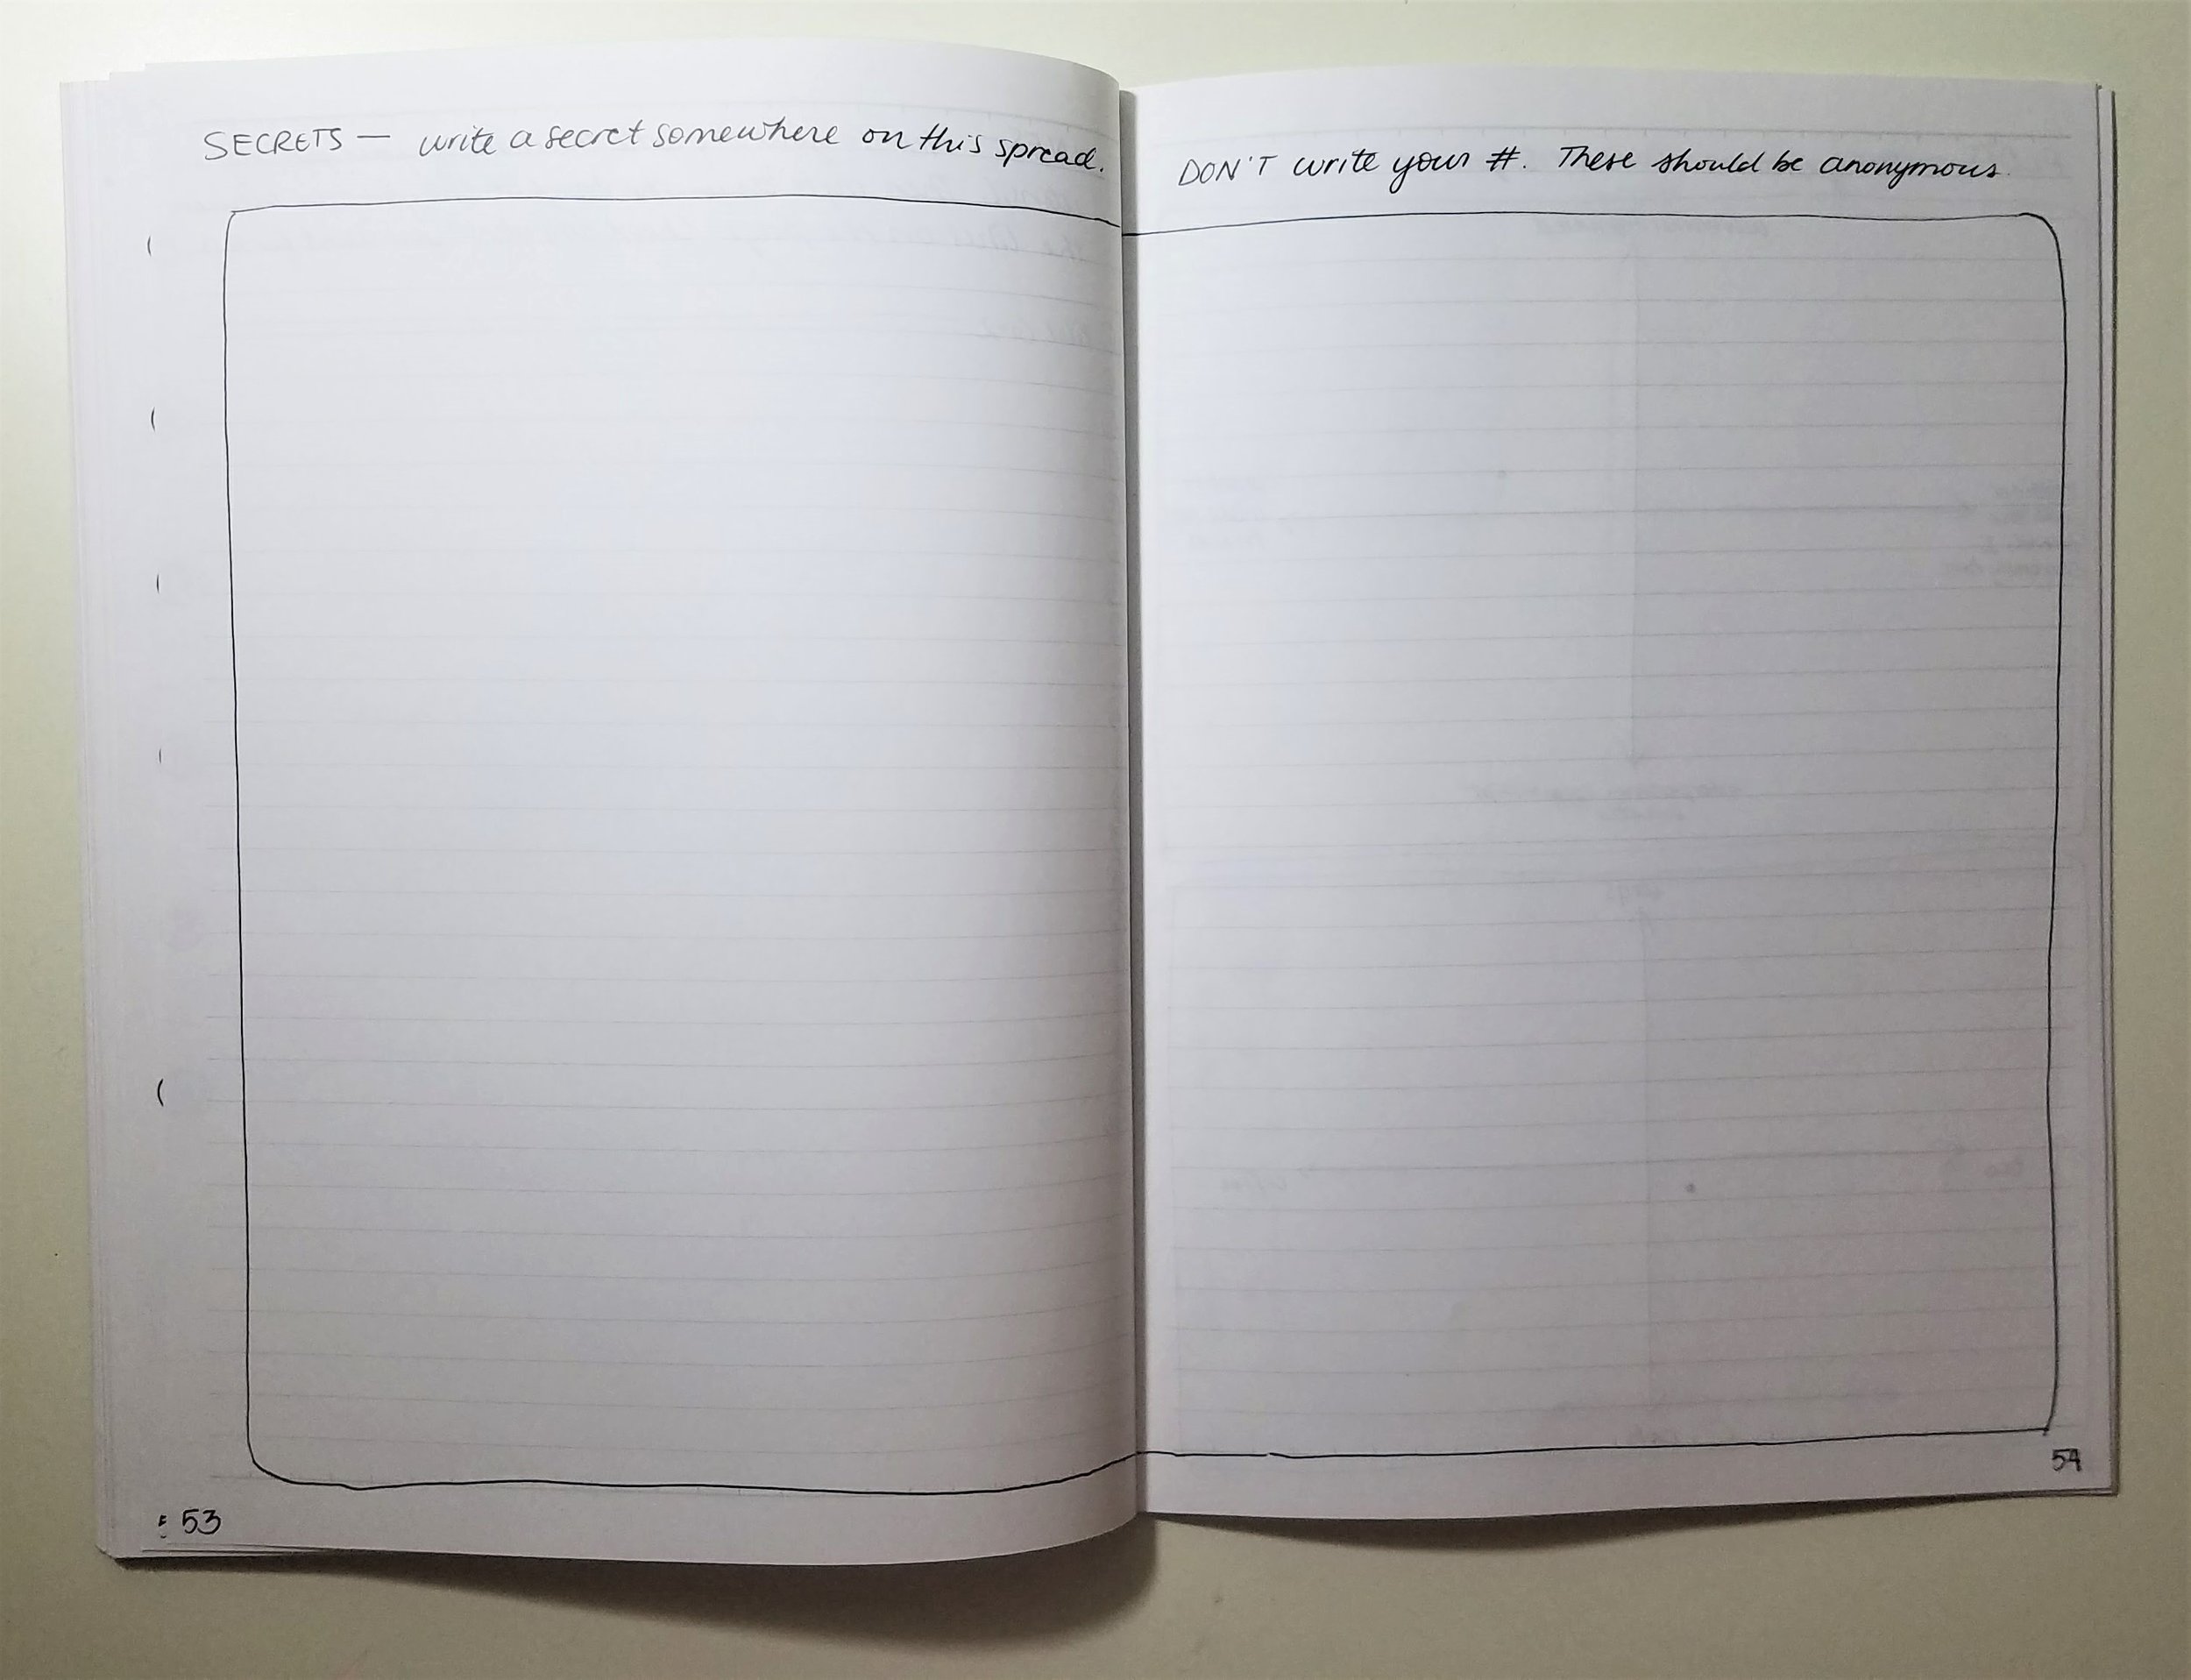 SECRETS — write a secret somewhere on this spread.
DON'T write your #. These should be anonymous.
53
54